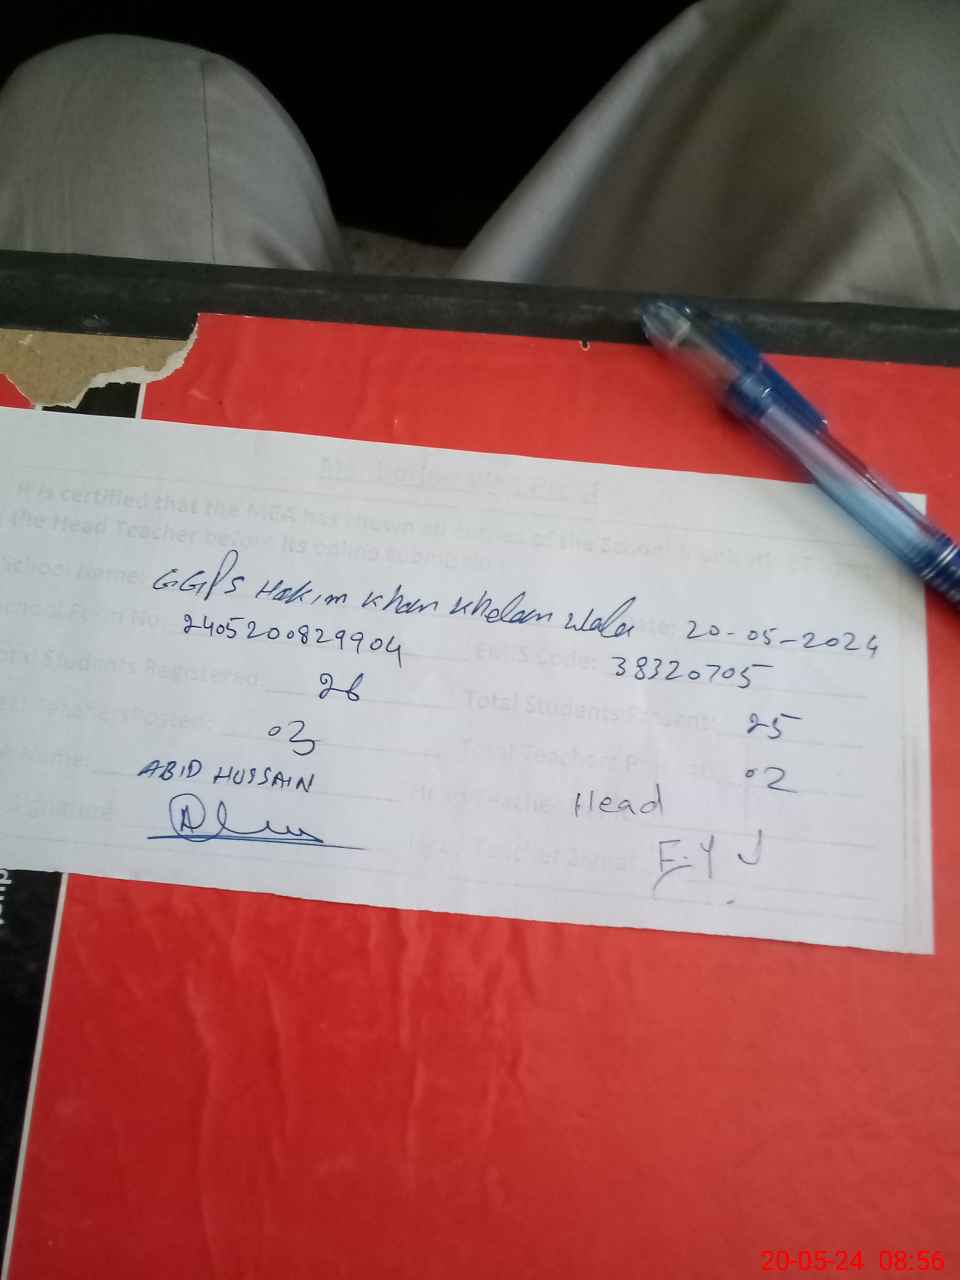 It is certified that the MEA has shown all entries of the School
the Head Teacher before its online submission
School Name: GGPS Hakim Khan Khelan Wala Date: 20-05-2024
School Form No. 2405200829904 EMIS Code: 38320705
Total Students Registered: 26 Total Students Present: 25
Total Teachers Posted: 03 Total Teachers 02
Name: ABID HUSSAIN Head Teacher Head
Signature Head Teacher Signat
20-05-24 08:56